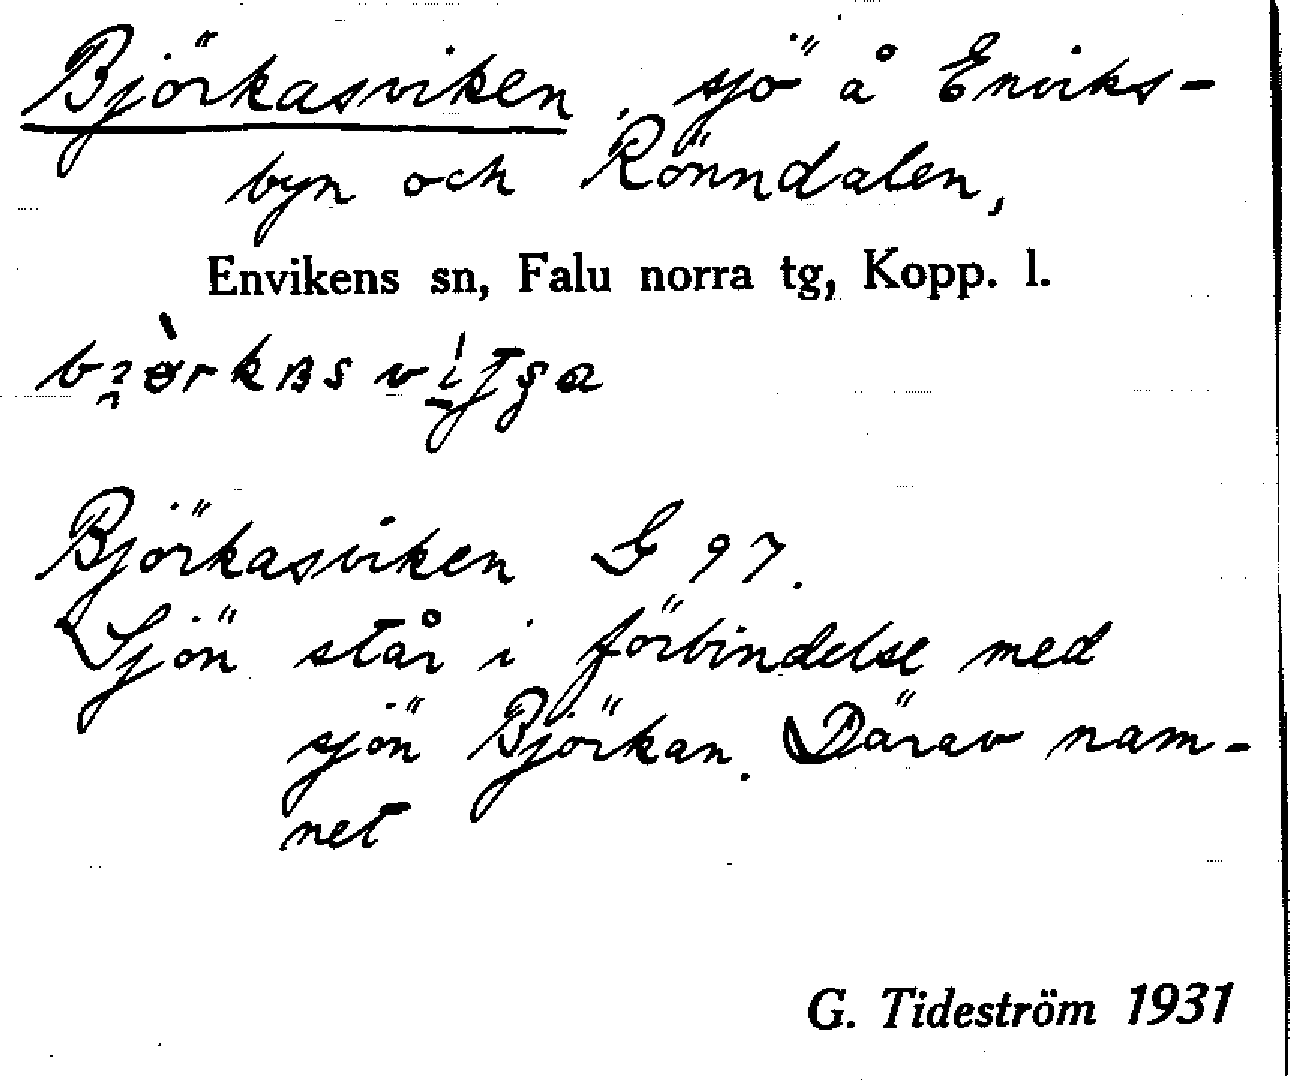 Björkasviken, sjö å Enviks-
byn och Rönndalen,
Envikens sn, Falu norra tg, Kopp. l.
Björkasviken G 97.
Sjön står i förbindelse med
sjön Björkan. Därav nam-
net
G. Tideström 1931